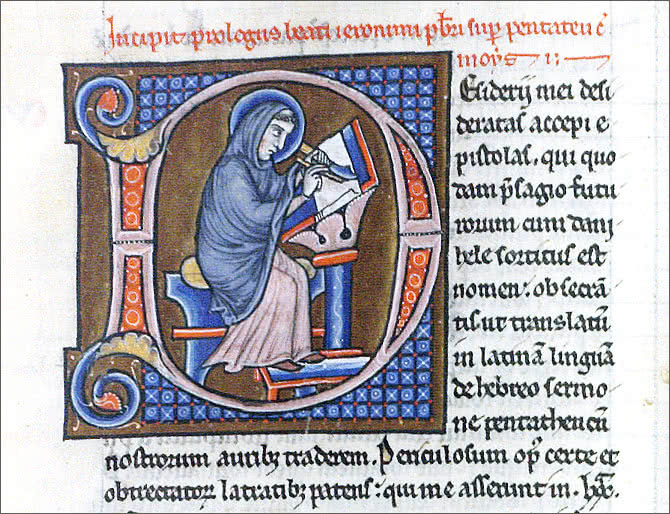 Incipit prologus beati ieronimi p̄bri sup̄ pentateuc̄
moẏsi
Esiderij mei desi
deratas accepi e
pistolas. qui quo
dam p̄sagio futu
rorum cum dani
hele sortitus est
nomen: obsecrā
tis ut translatū
in latinā linguā
de hebreo sermo
ne pentatheucū
nostrorum aurib; traderem. Periculosum op̄ certe et
obtrectatoꝝ latratib; patens: qui me asserunt in.